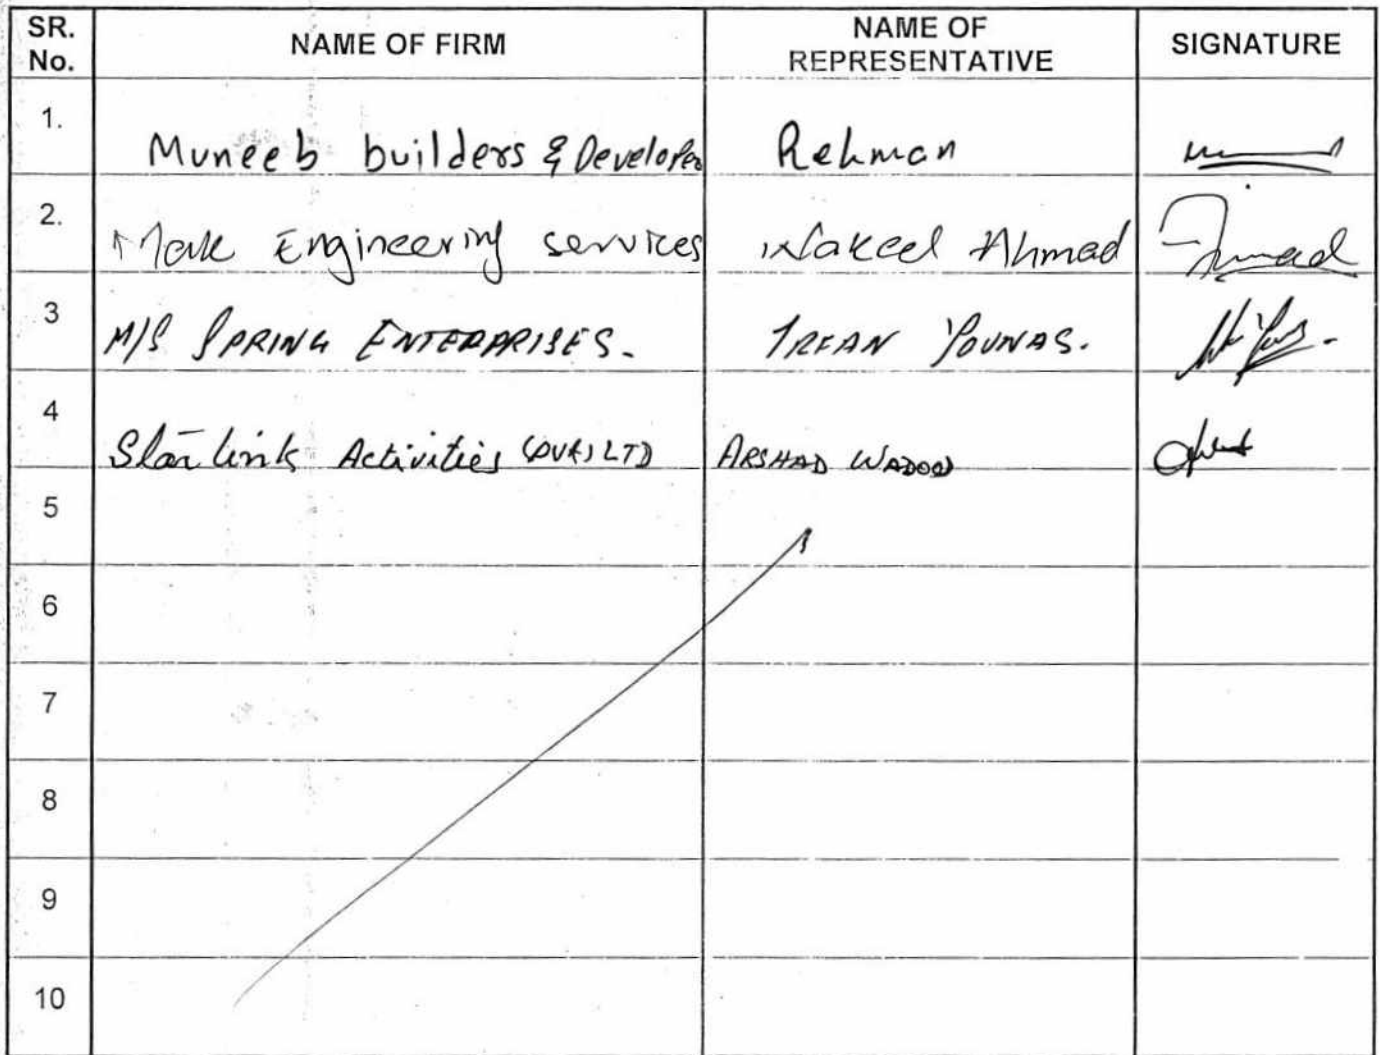 SR. No. NAME OF FIRM NAME OF REPRESENTATIVE SIGNATURE
1. Muneeb builders & Developer Rehman
2. Mark Engineering services Wakeel Ahmad
3 M/S SPRING ENTERPRISES. IRFAN YOUNAS.
4 Starlink Activities (PVT) LTD ARSHAD WADOOD
5
6
7
8
9
10